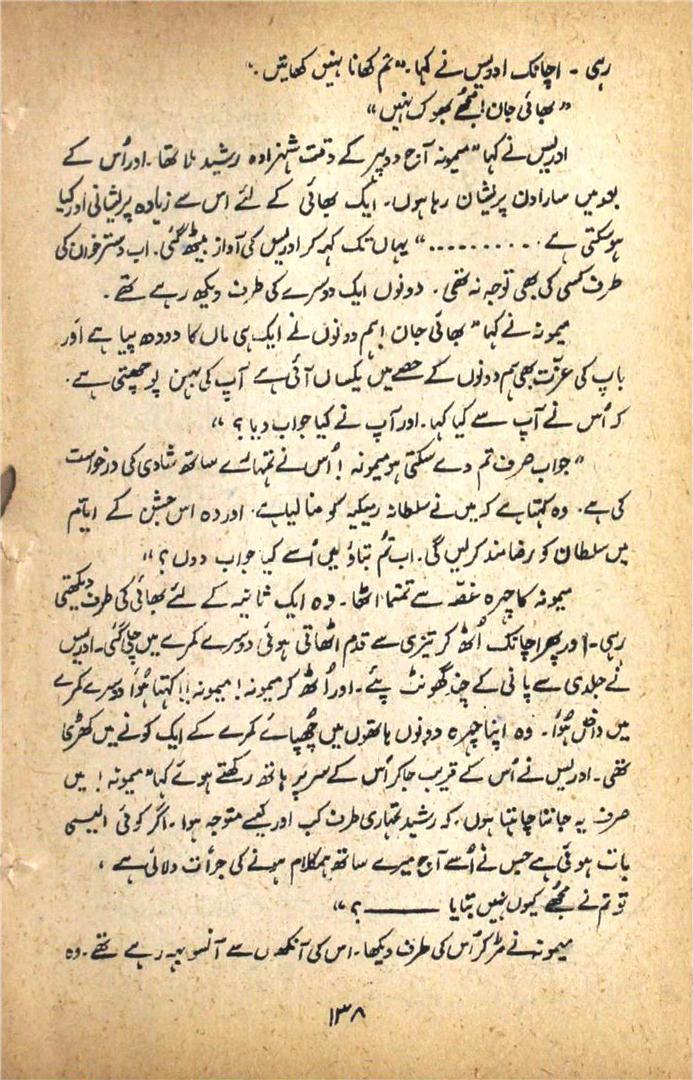 رہی - اچانک ادریس نے کہا۔ ”تم کھانا نہیں کھاتیں۔“
”بھائی جان! مجھے بھوک نہیں“
ادریس نے کہا ”میمونہ آج دوپہر کے وقت شہزادہ رشید ملا تھا۔ اور اُس کے
بعد میں سارا دن پریشان رہا ہوں۔ ایک بھائی کے لئے اس سے زیادہ پریشانی اور کیا
ہو سکتی ہے .........“ یہاں تک کہہ کر ادریس کی آواز بیٹھ گئی۔ اب دسترخوان کی
طرف کسی کی بھی توجہ نہ تھی۔ دونوں ایک دوسرے کی طرف دیکھ رہے تھے۔
میمونہ نے کہا ”بھائی جان! ہم دونوں نے ایک ہی ماں کا دودھ پیا ہے اور
باپ کی عزّت بھی ہم دونوں کے حصے میں یکساں آئی ہے آپ کی بہن پوچھتی ہے۔
کہ اُس نے آپ سے کیا کہا۔ اور آپ نے کیا جواب دیا؟“
”جواب صرف تم دے سکتی ہو میمونہ! اُس نے تمہارے ساتھ شادی کی درخواست
کی ہے۔ وہ کہتا ہے کہ میں نے سلطانہ رمیکیہ کو منا لیا ہے۔ اور وہ اس جشن کے ایام
میں سلطان کو رضامند کر لیں گی۔ اب تم بتاؤ میں اُسے کیا جواب دوں؟“
میمونہ کا چہرہ غصّہ سے تمتما اٹھا۔ وہ ایک ثانیہ کے لئے بھائی کی طرف دیکھتی
رہی - اور پھر اچانک اُٹھ کر تیزی سے قدم اٹھاتی ہوئی دوسرے کمرے میں چلی گئی۔ ادریس
نے جلدی سے پانی کے چند گھونٹ پئے۔ اور اُٹھ کر میمونہ! میمونہ!! کہتا ہُوا دوسرے کمرے
میں داخل ہُوا۔ وہ اپنا چہرہ دونوں ہاتھوں میں چُھپائے کمرے کے ایک کونے میں کھڑی
تھی۔ ادریس نے اُس کے قریب جا کر اُس کے سر پر ہاتھ رکھتے ہوئے کہا ”میمونہ! میں
صرف یہ جاننا چاہتا ہوں۔ کہ رشید تمہاری طرف کب اور کیسے متوجہ ہوا۔ اگر کوئی ایسی
بات ہوئی ہے جس نے اُسے آج میرے ساتھ ہمکلام ہونے کی جرأت دلائی ہے،
تو تم نے مجھے کیوں نہیں بتایا ——؟“
میمونہ نے مڑ کر اُس کی طرف دیکھا۔ اس کی آنکھوں سے آنسو بہہ رہے تھے۔ وہ
۱۳۸